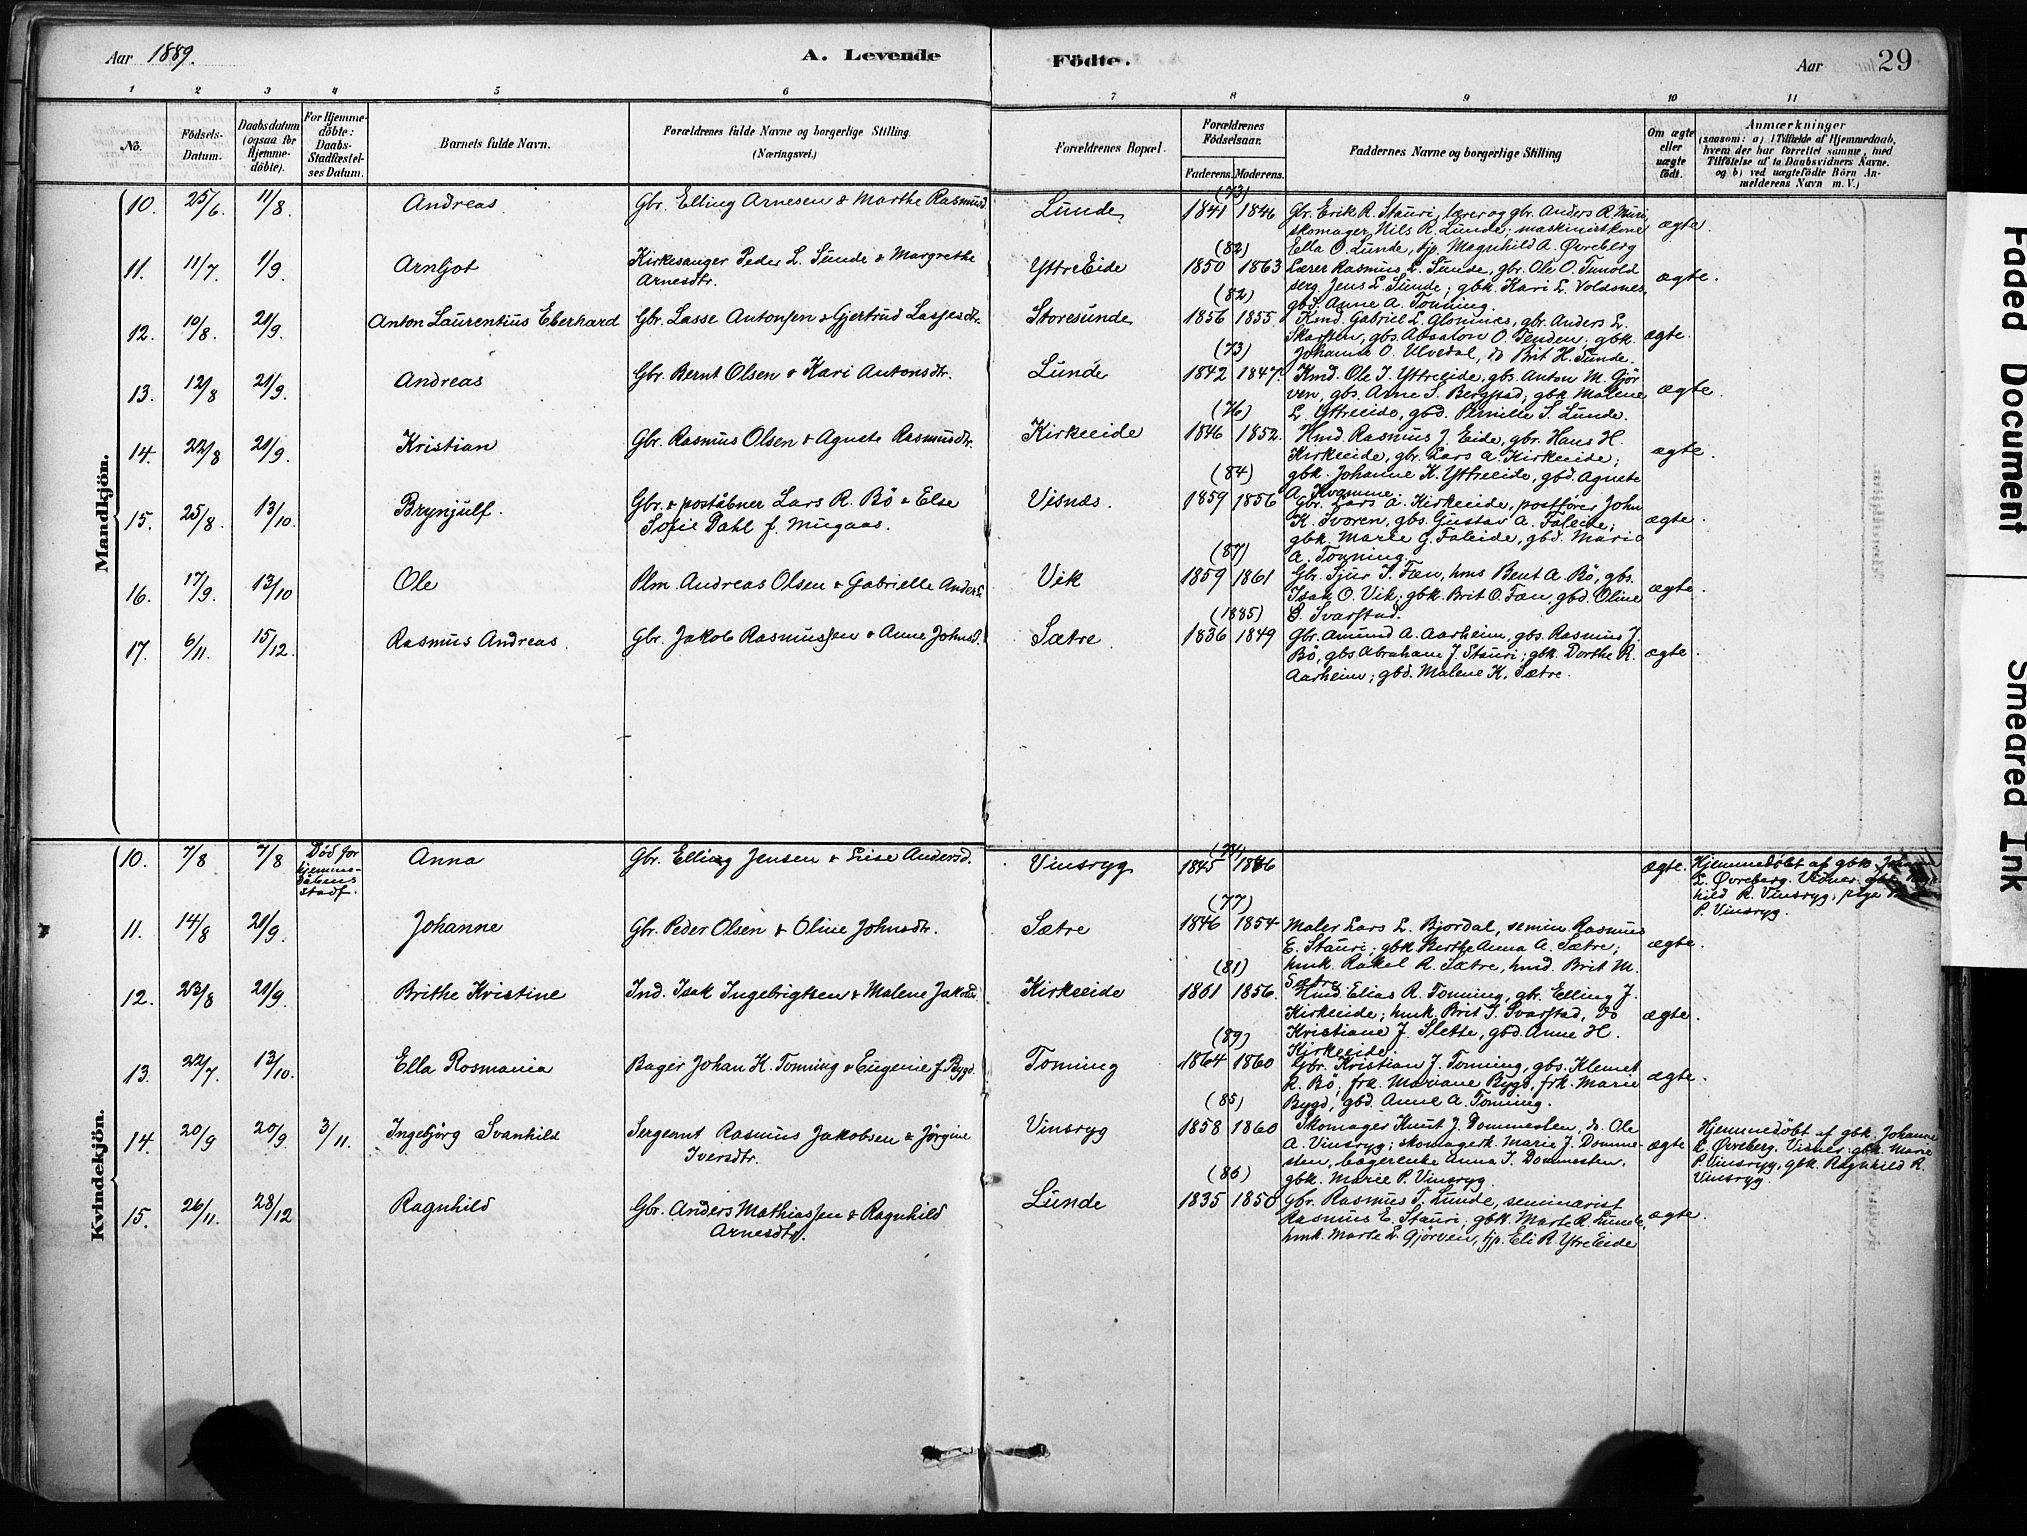 Aar 1889.
A. Levende
Fødte.
Aar
29
1 2 3 4 5 6 7 8 9 10 11
No.
Fødsels-Datum.
Daabsdatum (ogsaa for Hjemmedøbte).
For Hjemmedøbte: Daabs-Stadfæstelses Datum.
Barnets fulde Navn.
Forældrenes fulde Navne og borgerlige Stilling (Næringsvei.)
Forældrenes Bopæl.
Forældrenes Fødselsaar.
Faderens. Moderens.
Faddernes Navne og borgerlige Stilling
Om ægte eller uægte født.
Anmærkninger
(saasom: a) i Tilfælde af Hjemmedaab, hvem der har forrettet samme, med Tilføielse af to Daabsvidners Navne. og b) ved uægtefødte Børn Anmelderens Navn m. V.)
Mandkjön.
10. 25/6 11/8. Andreas Gbr. Elling Arnesen & Marthe Rasmusd Lunde (73) 1841 1846 Gbr. Erik R. Stauri, lærer og gbr. Anders R. Muri,
skomager Nils R. Lunde; maskinistkone
Ella O. Lunde, tjp. Magnhild A. Øvreberg
ægte.
11. 11/7 1/9. Arnljot Kirkesanger Peder L. Sunde & Margrethe
Arnesdtr. YttreEide (82) 1850 1863 Lærer Rasmus L. Sunde, gbr. Ole O. Tunold
serg. Jens L. Sunde; gbk. Kari L. Voldsnes,
gbd. Anne A. Tonning.
ægte.
12. 10/8. 21/9. Anton Laurentius Eberhard Gbr. Lasse Antonsen & Gjertrud Lassesdtr. Storesunde (82) 1856 1855 Kmd. Gabriel L. Glomnes, gbr. Anders L.
Skarsten, gbs. Absalon O. Tenden; gbk.
Johanne O. Ulvedal, do Brit H. Sunde.
ægte.
13. 12/8 21/9. Andreas Gbr. Bernt Olsen & Kari Antonsdtr. Lunde (73) 1842 1847. Kmd. Ole J. Yttreeide, gbs. Anton M. Gjör
ven, gbs. Arne S. Bergstad; gbk. Malene
L. Yttreeide, gbd. Pernille S. Lunde.
ægte.
14. 22/8 21/9. Kristian Gbr. Rasmus Olsen & Agnete Rasmusdtr. Kirkeeide (76) 1846 1852. Hmd. Rasmus J. Eide, gbr. Hans H.
Kirkeeide, gbr. Lars A. Kirkeeide;
gbk. Johanne K. Yttreeide, gbd. Agnete
A. Kvamme.
ægte.
15. 25/8. 13/10. Brynjulf. Gbr. & poståbner Lars R. Bö & Else
Sofie Dahl f. Mugaas. Visnæs. (84) 1859 1856 Gbr. Lars A. Kirkeeide, postfører John
K. Svoren, gbs. Gustav A. Faleide;
gbk. Marie G. Faleide, gbd. Marie
A. Tonning.
ægte.
16. 17/9. 13/10 Ole Plm. Andreas Olsen & Gabrielle Anders. Vik (87) 1859 1861 Gbr. Sjur J. Fæn, hms Bent A. Bö, gbs.
Isak O. Vik; gbk. Brit O. Fæn, gbd. Oline
S. Svarstad.
ægte.
17. 6/11. 15/12. Rasmus Andreas. Gbr. Jakob Rasmussen & Anne Johnsd. Sætre. (1885) 1836 1849 Gbr. Amund A. Aarheim, gbs. Rasmus J.
Bö, gbs Abraham J. Stauri; gbk. Dorthe R.
Aarheim; gbd. Malene K. Sætre.
ægte.
Kvindekjön.
10. 7/8 7/8 Død før
hjemme-
dåbens
stadf. Anna Gbr. Elling Jensen & Lise Andersd. Vinsryg 1845 1846 ægte. Hjemmedøbt af gbk. Johanne
L. Øvreberg. Vidner:
hild R. Vinsryg,
P. Vinsryg.
11. 14/8 21/9. Johanne Gbr. Peder Olsen & Oline Johnsdtr. Sætre (77) 1846 1854 Maler Lars L. Bjordal, semin Rasmus
E. Stauri; gbk Berthe Anna A. Sætre;
hmk. Rakel R. Sætre, hmd. Brit M.
Sætre
ægte.
12. 23/8 21/9. Brithe Kristine Ind. Isak Ingebrigtsen & Malene Jakobd. Kirkeeide (81) 1861 1856. Hmd. Elias R. Tonning, gbr. Elling J.
Kirkeeide; hmk. Brit I. Svarstad, do
Kristiane J. Slette, gbd. Anne H.
Kirkeeide.
ægte.
13. 22/7. 13/10. Ella Rosmania Bager Johan K. Tonning & Eugenie f. Bygd. Tonning (89) 1864 1860 Gbr. Kristian J. Tonning, gbs. Klemet
R. Bö; frk. Mariane Bygd, frk. Marie
Bygd, gbd. Anne A. Tonning.
ægte.
14. 20/9 20/9. 3/11. Ingebjörg Svanhild Sergeant Rasmus Jakobsen & Jörgine
Iversdtr. Vinsryg (85) 1858 1860 Skomager Knut J. Dommesten, do. Ole
A. Vinsryg; skomagerk. Marie J. Domme-
sten, bagerenke Anna I. Dommesten,
gbk. Marie P. Vinsryg.
ægte Hjemmedøbt af gbk. Johanne
L. Øvreberg. Vidner: gbk. Marie
P. Vinsryg, gbk. Ragnhild R.
Vinsryg.
15. 26/11. 28/12 Ragnhild Gbr. Anders Mathiassen & Ragnhild
Arnesdtr. Lunde (86) 1835 1850 Gbr. Rasmus T. Lunde, seminarist
Rasmus E. Stauri; gbk. Marte R. Lunde,
hmk. Marte L. Gjörven, tjp. Eli R. YtreEide
ægte.
Faded Document
Smeared Ink